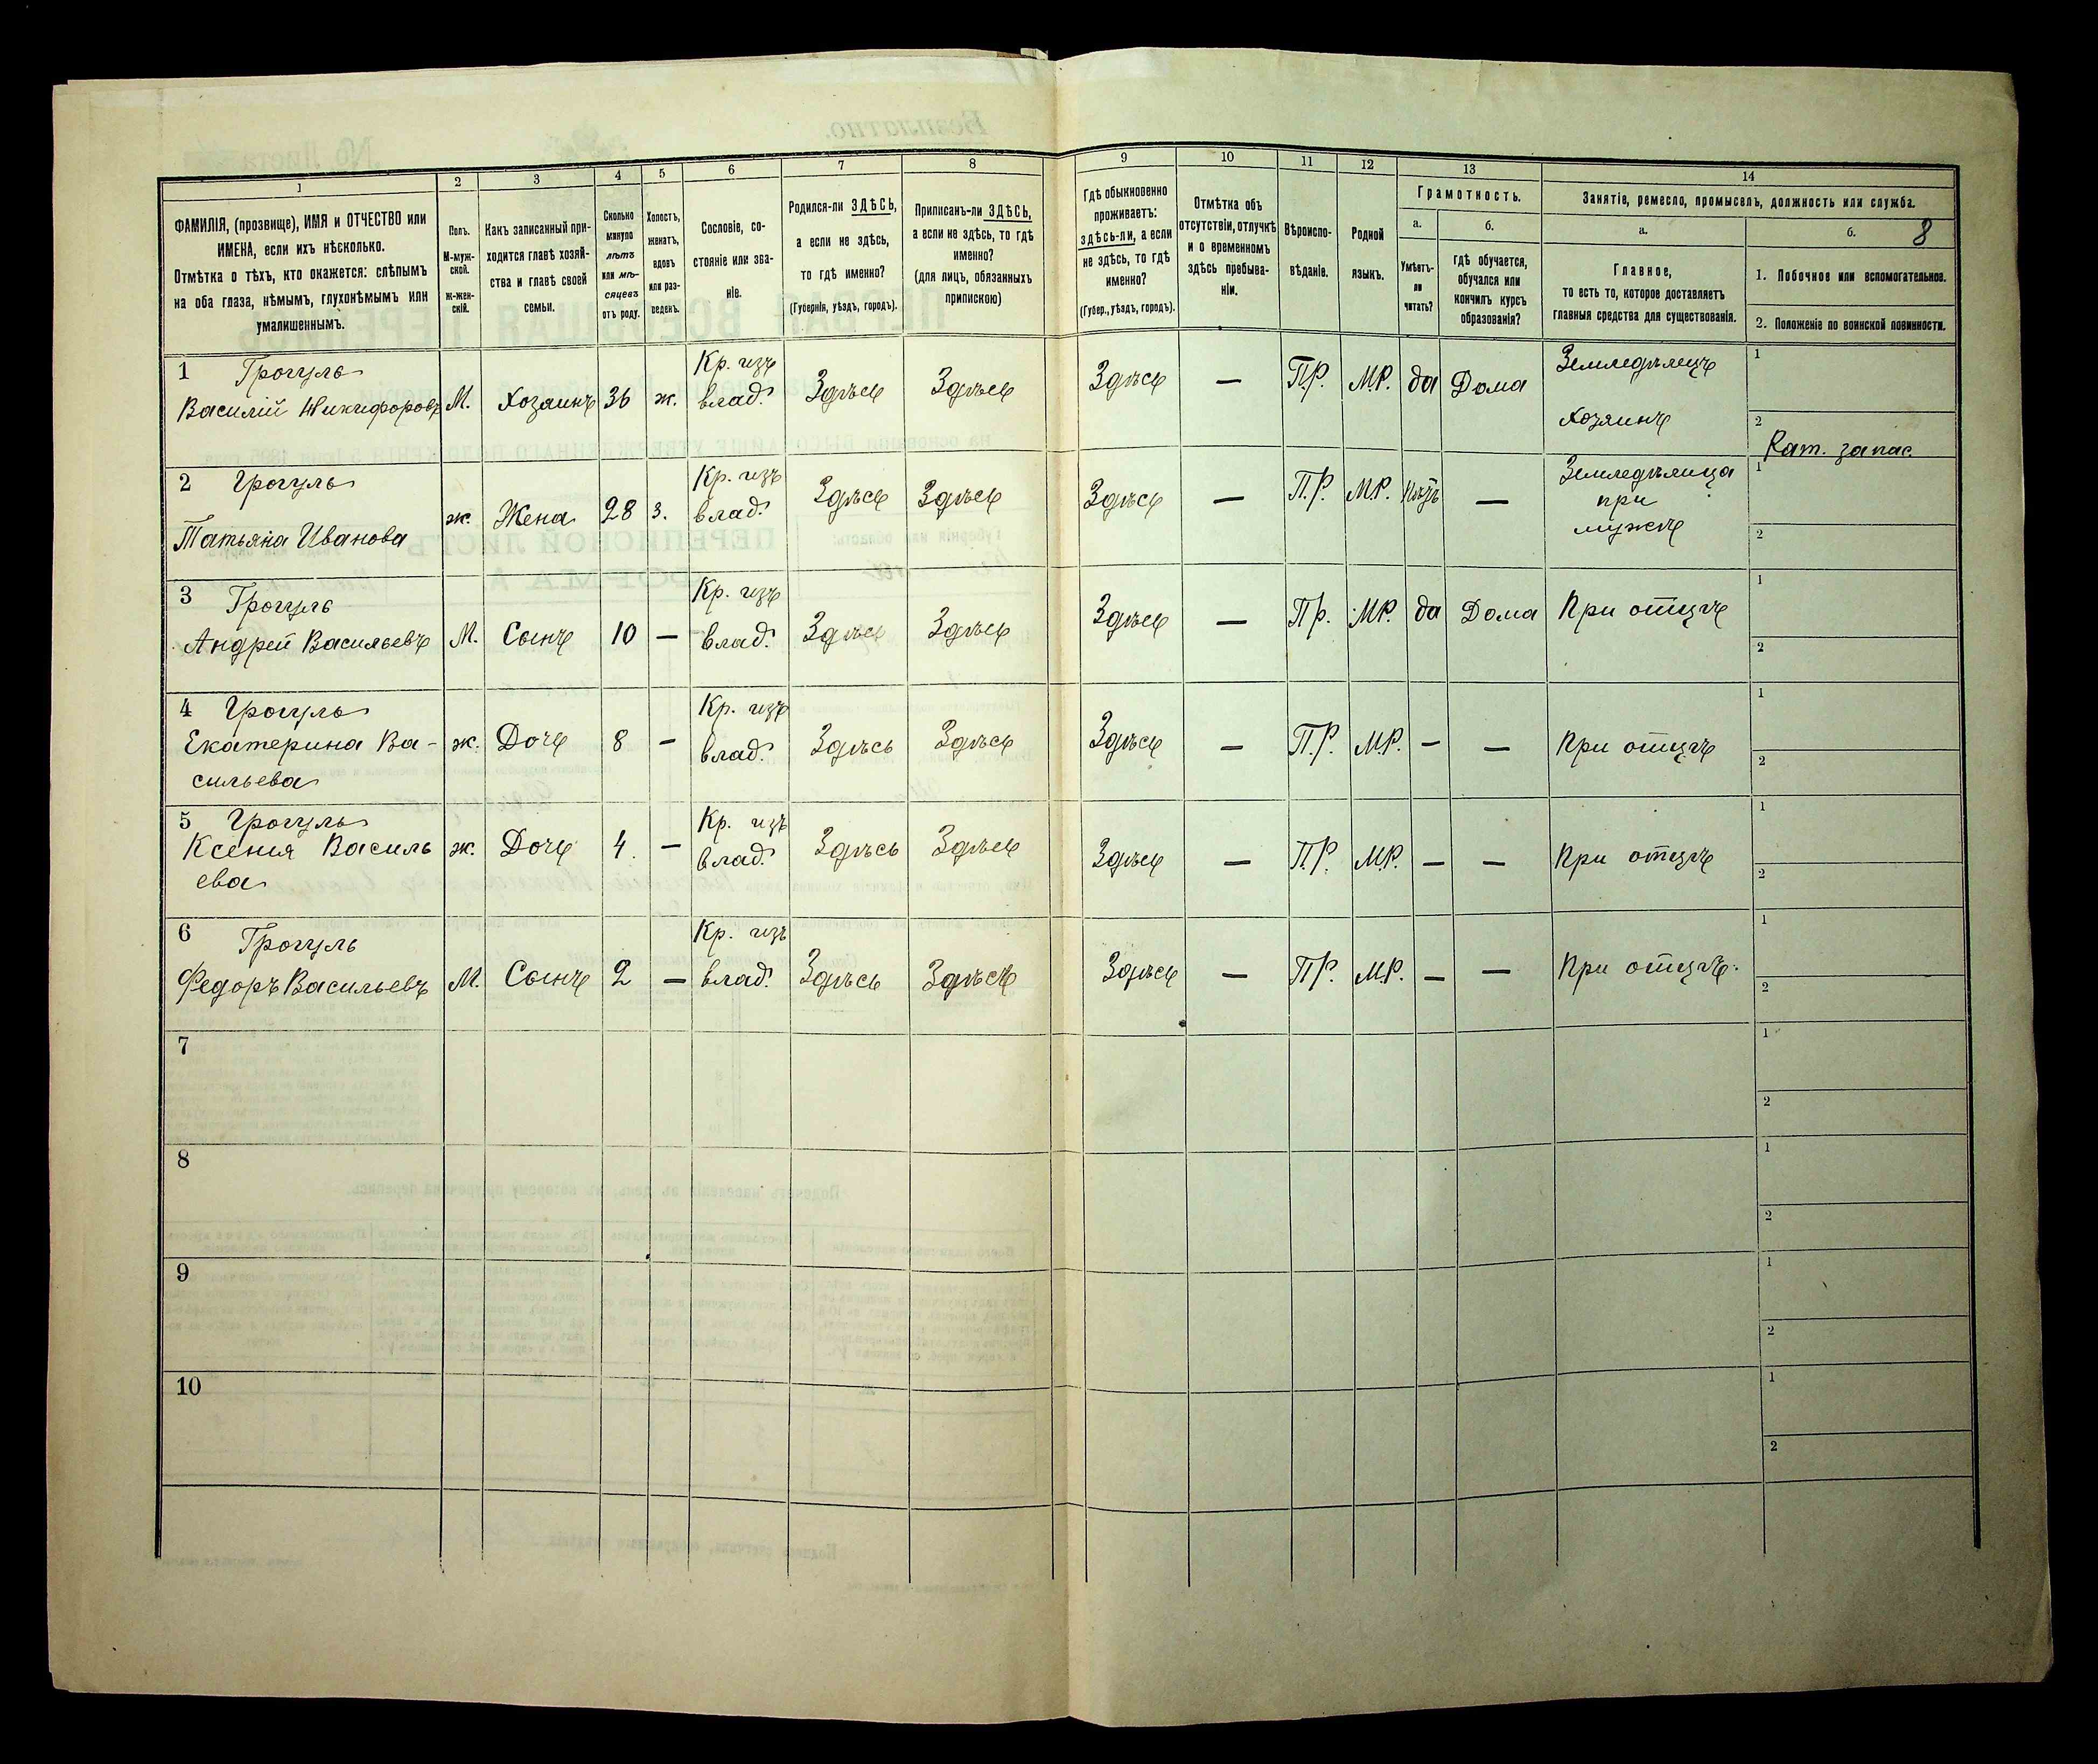 1 2 3 4 5 6 7 8 9 10 11 12 13 14
ФАМИЛІЯ, (прозвище), ИМЯ и ОТЧЕСТВО или
ИМЕНА, если ихъ нѣсколько.
Отмѣтка о тѣхъ, кто окажется: слѣпымъ
на оба глаза, нѣмымъ, глухонѣмымъ или
умалишеннымъ.
Полъ.
М-муж-
ской.
ж-жен-
скій.
Какъ записанный при-
ходится главѣ хозяй-
ства и главѣ своей
семьи.
Сколько
минуло
лѣтъ
или мѣ-
сяцевъ
отъ роду.
Холостъ,
женатъ,
вдовъ
или раз-
веденъ.
Сословіе, со-
стояніе или зва-
ніе.
Родился-ли ЗДѢСЬ,
а если не здѣсь,
то гдѣ именно?
(Губернія, уѣздъ, городъ).
Приписанъ-ли ЗДѢСЬ,
а если не здѣсь, то гдѣ
именно?
(для лицъ, обязанныхъ
припискою)
Гдѣ обыкновенно
проживаетъ:
здѣсь-ли, а если
не здѣсь, то гдѣ
именно?
(Губер., уѣздъ, городъ).
Отмѣтка объ
отсутствіи, отлучкѣ
и о временномъ
здѣсь пребыва-
ніи.
Вѣроиспо-
вѣданіе.
Родной
языкъ.
Грамотность.
а.
Умѣетъ-
ли
читать?
б.
гдѣ обучается,
обучался или
кончилъ курсъ
образованія?
Занятіе, ремесло, промыселъ, должность или служба.
а.
Главное,
то есть то, которое доставляетъ
главныя средства для существованія.
б. 8
1. Побочное или вспомогательное.
2. Положеніе по воинской повинности.
1
Василій Никифоровъ М. Хозяинъ 36 ж. Кр. изъ
влад. Здѣсь Здѣсь Здѣсь — П.Р. М.Р. да Дома Земледѣлецъ
Хозяинъ
1
2
Рат. запас.
2
Татьяна Иванова ж. Жена 28 з. Кр. изъ
влад. Здѣсь Здѣсь Здѣсь — П.Р. М.Р. Нѣтъ — Земледѣлица
при
мужѣ
1
2
3
Андрей Васильевъ М. Сынъ 10 — Кр. изъ
влад. Здѣсь Здѣсь Здѣсь — Пр. М.Р. да Дома При отцѣ
1
2
4
Екатерина Ва-
сильева ж. Дочь 8 — Кр. изъ
влад. Здѣсь Здѣсь Здѣсь — П.Р. М.Р. — — При отцѣ
1
2
5
Ксенія Василь
ева ж. Дочь 4. — Кр. изъ
влад. Здѣсь Здѣсь Здѣсь — П.Р. М.Р. — — При отцѣ
1
2
6
Федоръ Васильевъ М. Сынъ 2 — Кр. изъ
влад. Здѣсь Здѣсь Здѣсь — П.Р. М.Р. — — При отцѣ.
1
2
7
1
2
8
1
2
9
1
2
10
1
2